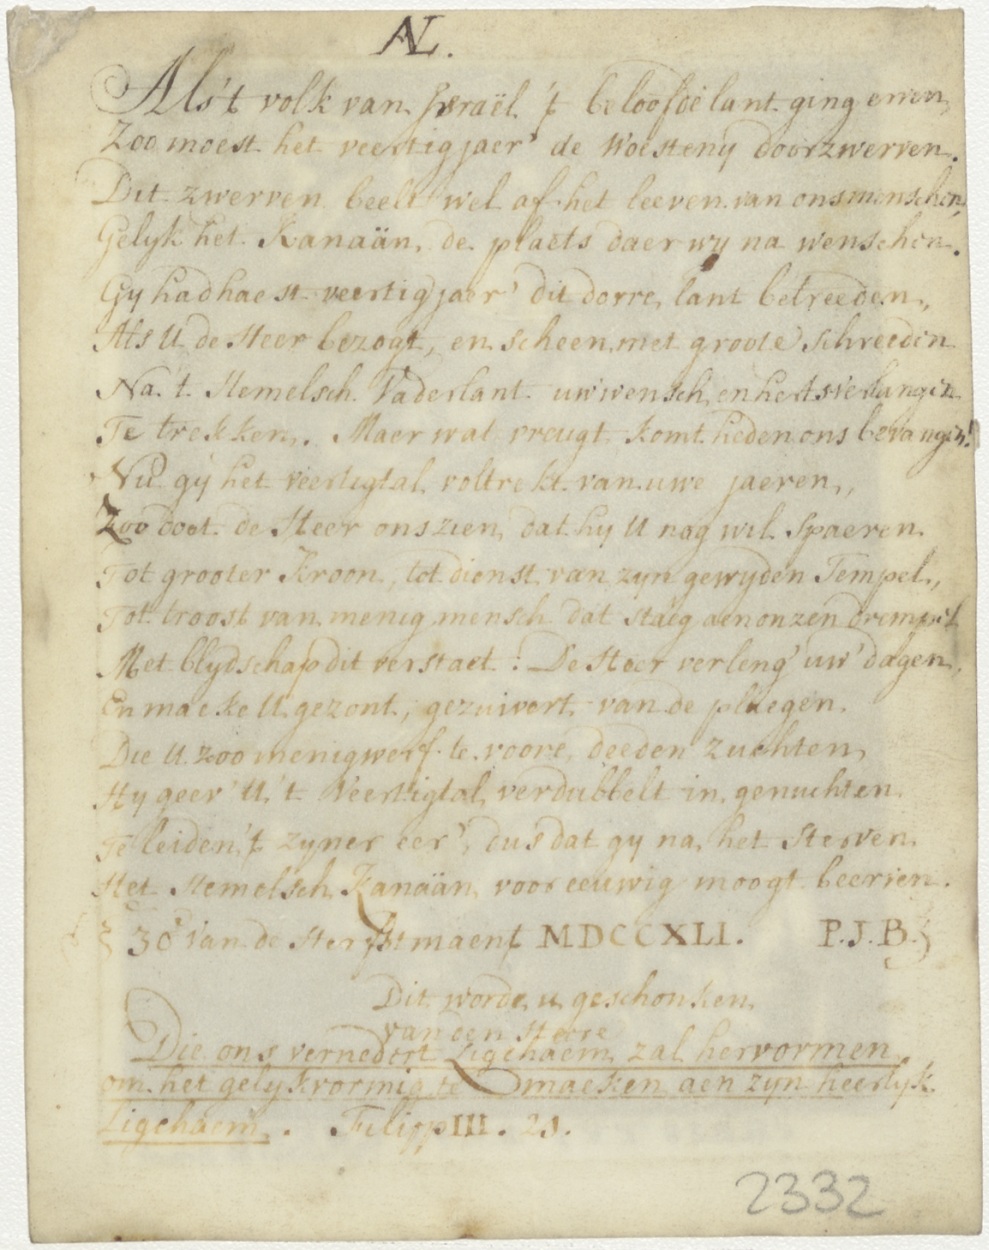 AL.
Als 't volk van Israël 't beloofde lant ging erven,
Zoo moest het veertig jaer' de Woesteny doorzwerven.
Dit zwerven beelt wel af het leeven van ons menschen,
Gelyk het Kanaän, de plaets daer wy na wenschen.
Gy had haest veertig jaer' dit dorre lant betreeden,
Als U de Heer bezogt, en scheen met groote schreeden
Na 't Hemelsch Vaderlant uw wensch, en herts verlangen
Te trekken. Maer wat vreugt komt heden ons bevangen!
Nu gy het veertigtal voltrekt van uwe jaeren,
Zoo doet de Heer ons zien, dat hy U nog wil spaeren
Tot grooter Kroon, tot dienst van zyn gewyden Tempel,
Tot troost van menig mensch dat staeg aen onzen drempel
Met blydschap dit verstaet: De Heer verleng' uw' dagen,
En maeke U gezont, gezuivert van de plaegen.
Die U zoo menigwerf te voore deeden zuchten,
Hy geev' U 't Veertigtal verdubbelt in genuchten
Te leiden 't zyner eer', dus dat gy na het sterven
Het Hemelsch Kanaän, voor eeuwig moogt beerven.
30 van de Herfstmaent MDCCXLI. P.J.B.
Dit worde u geschonken
van den Heere
Die ons vernedert Ligchaem zal hervormen
om het gelykvormig te maeken aen zyn heerlyk
Ligchaem. Filipp III. 21.
2332